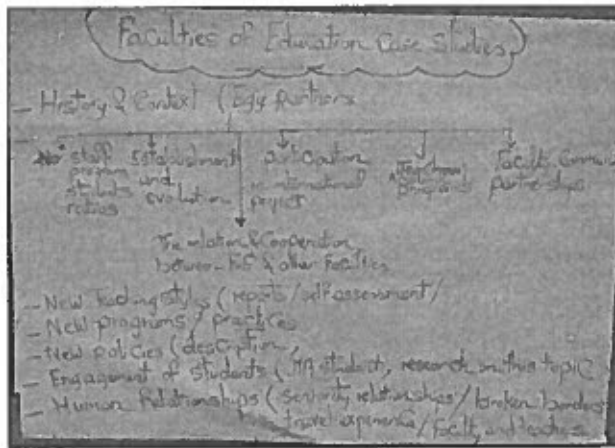 Faculties of Education Case Studies
_ History & Context ( Egy partners
No staff Establishment participation Faculty
program and in international partnerships
students evaluation project
ratios
The relation & Cooperation
between FoE & other Faculties
_ New Teaching styles ( reports / self assessment /
_ New programs / practices
_ New policies ( description,
_ Engagement of students ( student, research on this topic
_ Human Relationships ( seniority, relationships / broken borders
travel experience / faculty and teachers